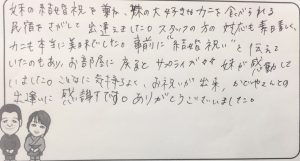 妹の結婚祝を兼ね、妹の大好きなカニを食べられる
民宿をさがして出逢えました。スタッフの方の対応も素晴しく
カニも本当に美味でした。事前に"結婚祝い"と伝えて
いたのもあり、お部屋に戻るとサプライズが々 妹が感動して
いました。とても気持ちよく、お祝いが出来、かどやさんとの
出逢いに感謝です。ありがとうございました。